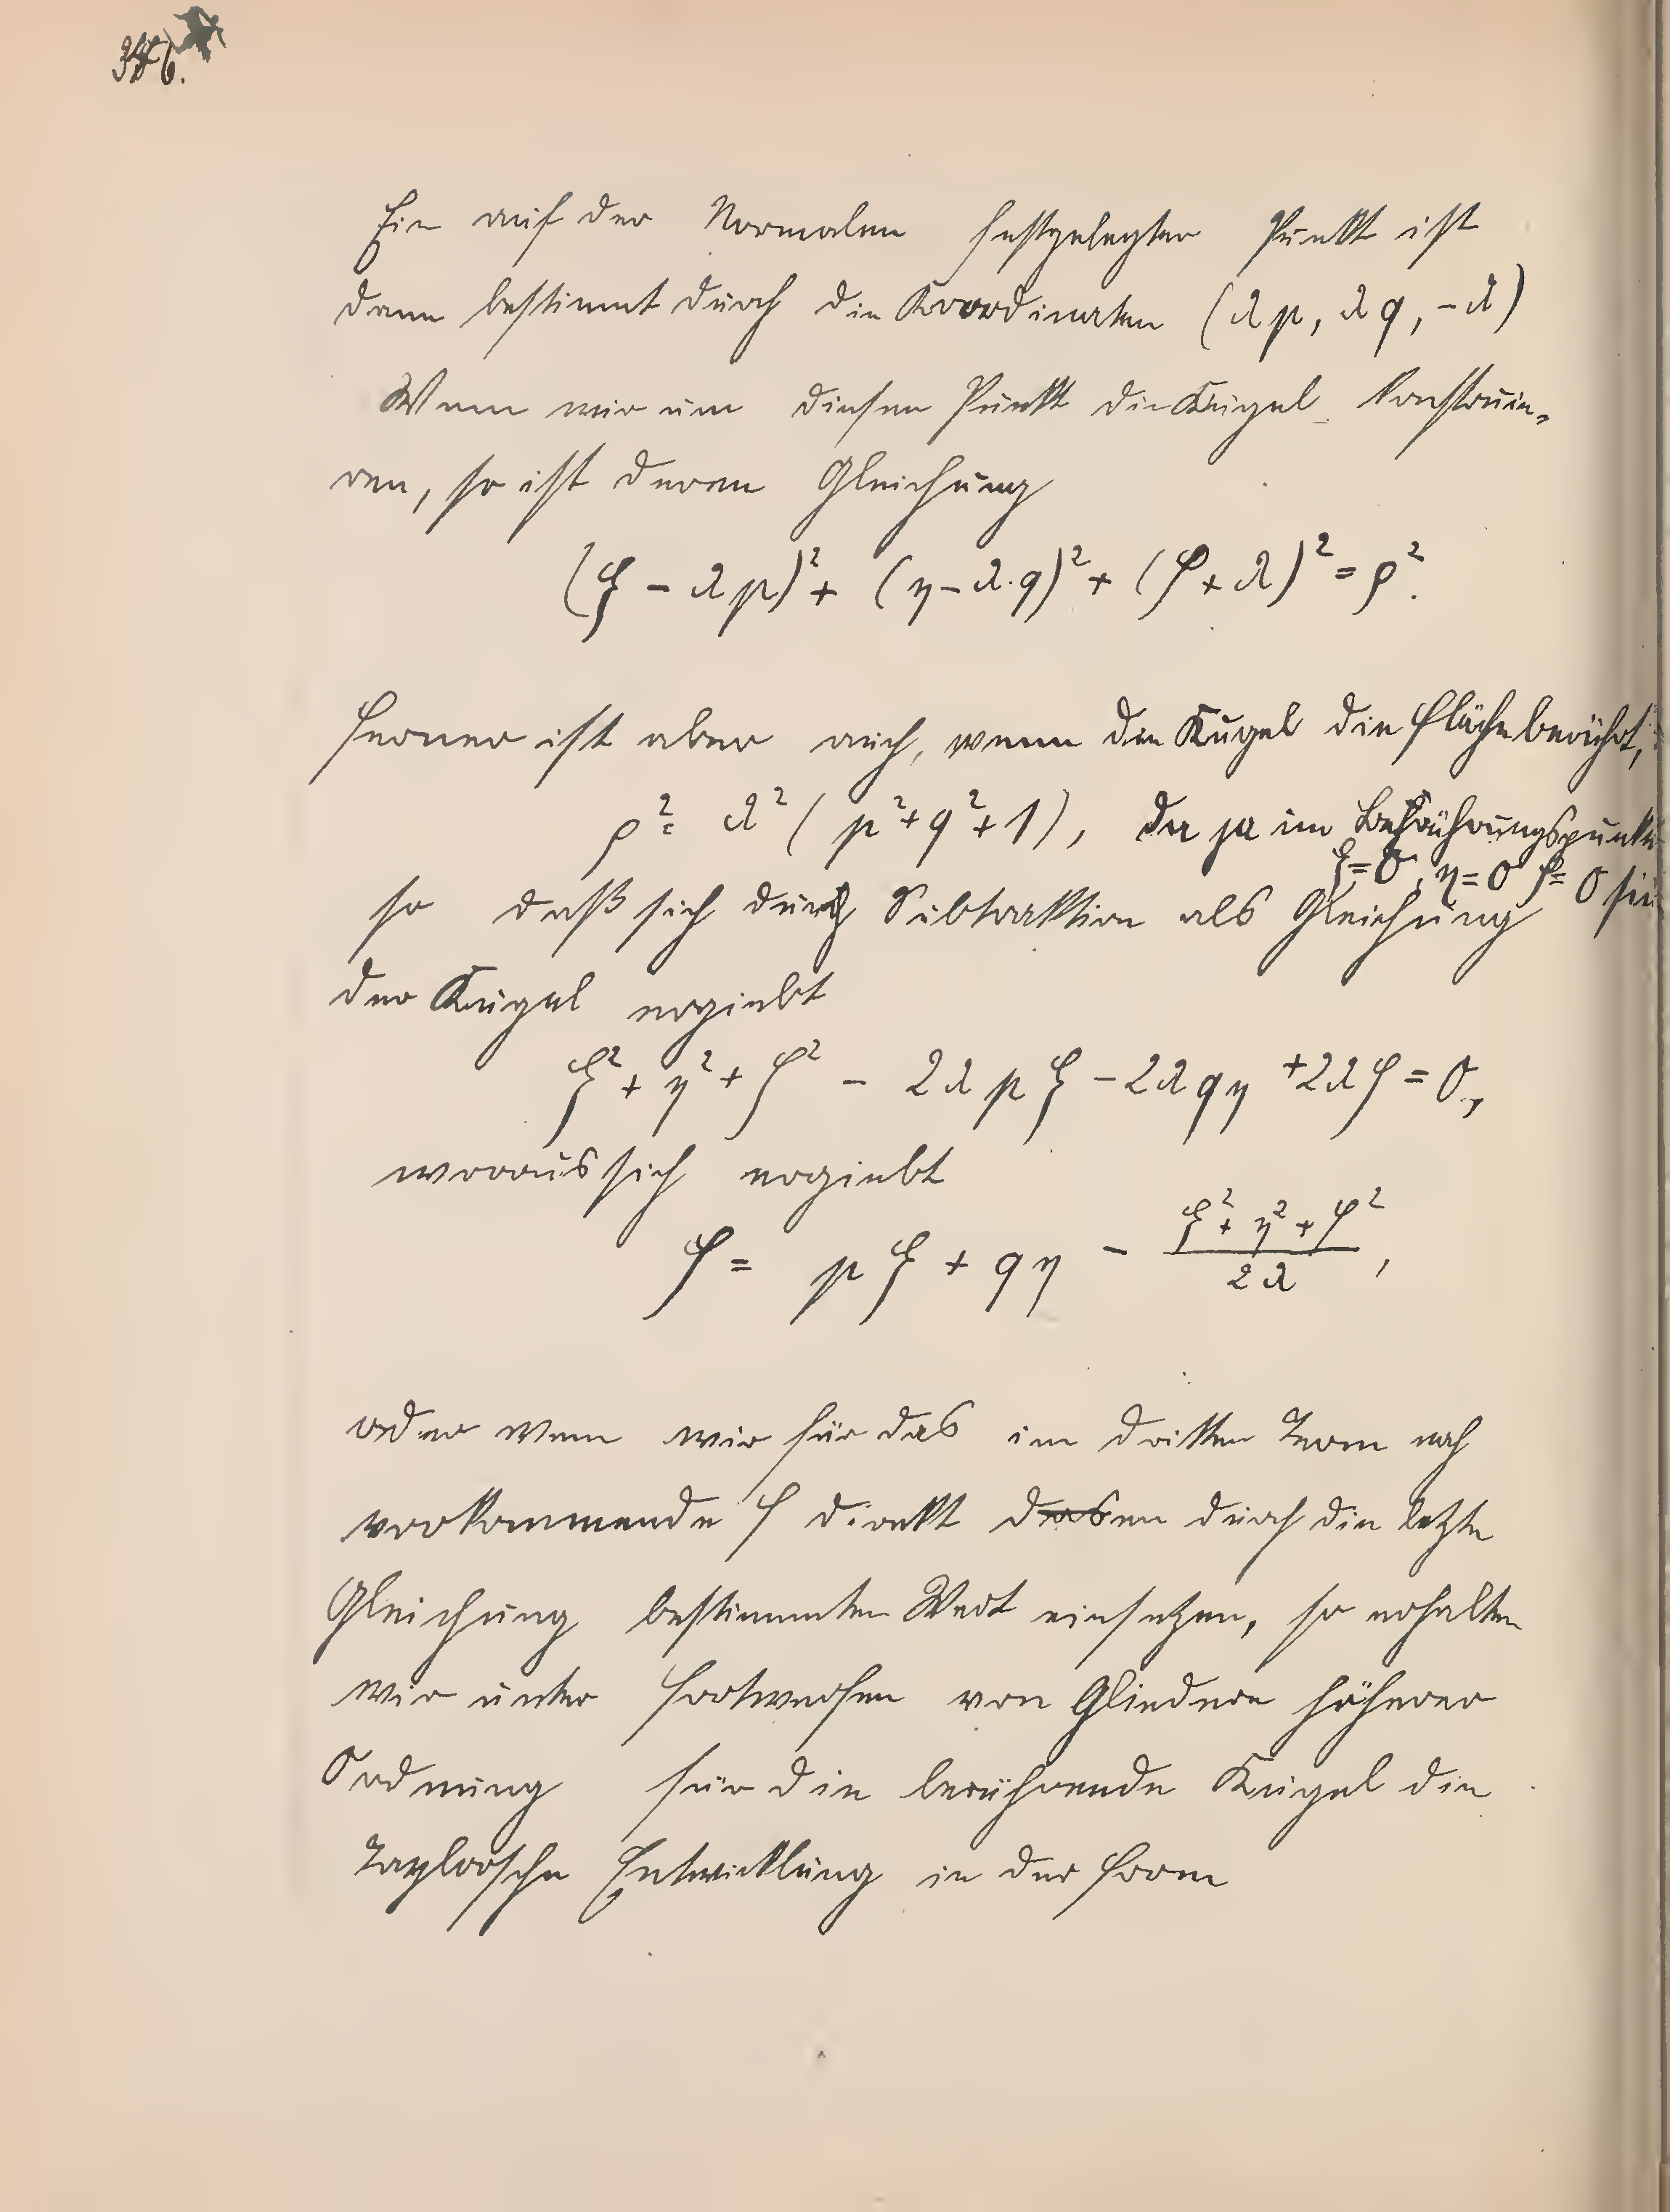 346.
Ein auf der Normalen festgelegter Punkt ist
dann bestimmt durch die Koordinaten (λp, λq, -λ)
Wenn wir um diesen Punkt die Kugel konstruie-
ren, so ist deren Gleichung
(ξ - λp)² + (η - λ·q)² + (ζ + λ)² = ρ².
Ferner ist aber auch, wenn die Kugel die Fläche berührt,
ρ² = λ² (p² + q² + 1), da ja im Berührungspunkte
ξ = 0, η = 0 ζ = 0 sin
so daß sich durch Subtraktion als Gleichung
der Kugel ergiebt
ξ² + η² + ζ² - 2λpξ - 2λqη + 2λζ = 0,
woraus sich ergiebt
ζ = pξ + qη - (ξ² + η² + ζ²)/2λ,
oder wenn wir für das im dritten Term noch
vorkommende ζ direkt den durch die letzte
Gleichung bestimmten Wert einsetzen, so erhalten
wir unter Fortwerfen von Gliedern höherer
Ordnung für die berührende Kugel die
Taylorsche Entwicklung in der Form